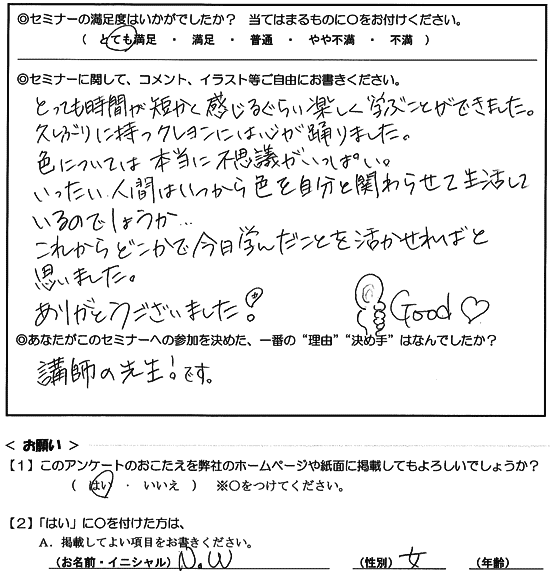 ◎セミナーの満足度はいかがでしたか？ 当てはまるものに○をお付けください。
（ とても満足 ・ 満足 ・ 普通 ・ やや不満 ・ 不満 ）
◎セミナーに関して、コメント、イラスト等ご自由にお書きください。
とっても時間が短かく感じるぐらい楽しく学ぶことができました。
久しぶりに持つクレヨンには心が踊りました。
色については本当に不思議がいっぱい。
いったい人間はいつから色を自分と関わらせて生活して
いるのでしょうか…
これからどこかで今日学んだことを活かせればと
思いました。
ありがとうございました！
Good♡
◎あなたがこのセミナーへの参加を決めた、一番の“理由”“決め手”はなんでしたか？
講師の先生！です。
＜ お願い ＞
【１】このアンケートのおこたえを弊社のホームページや紙面に掲載してもよろしいでしょうか？
（ はい ・ いいえ ） ※○をつけてください。
【２】「はい」に○を付けた方は、
Ａ．掲載してよい項目をお書きください。
（お名前・イニシャル） N.W （性別） 女 （年齢）